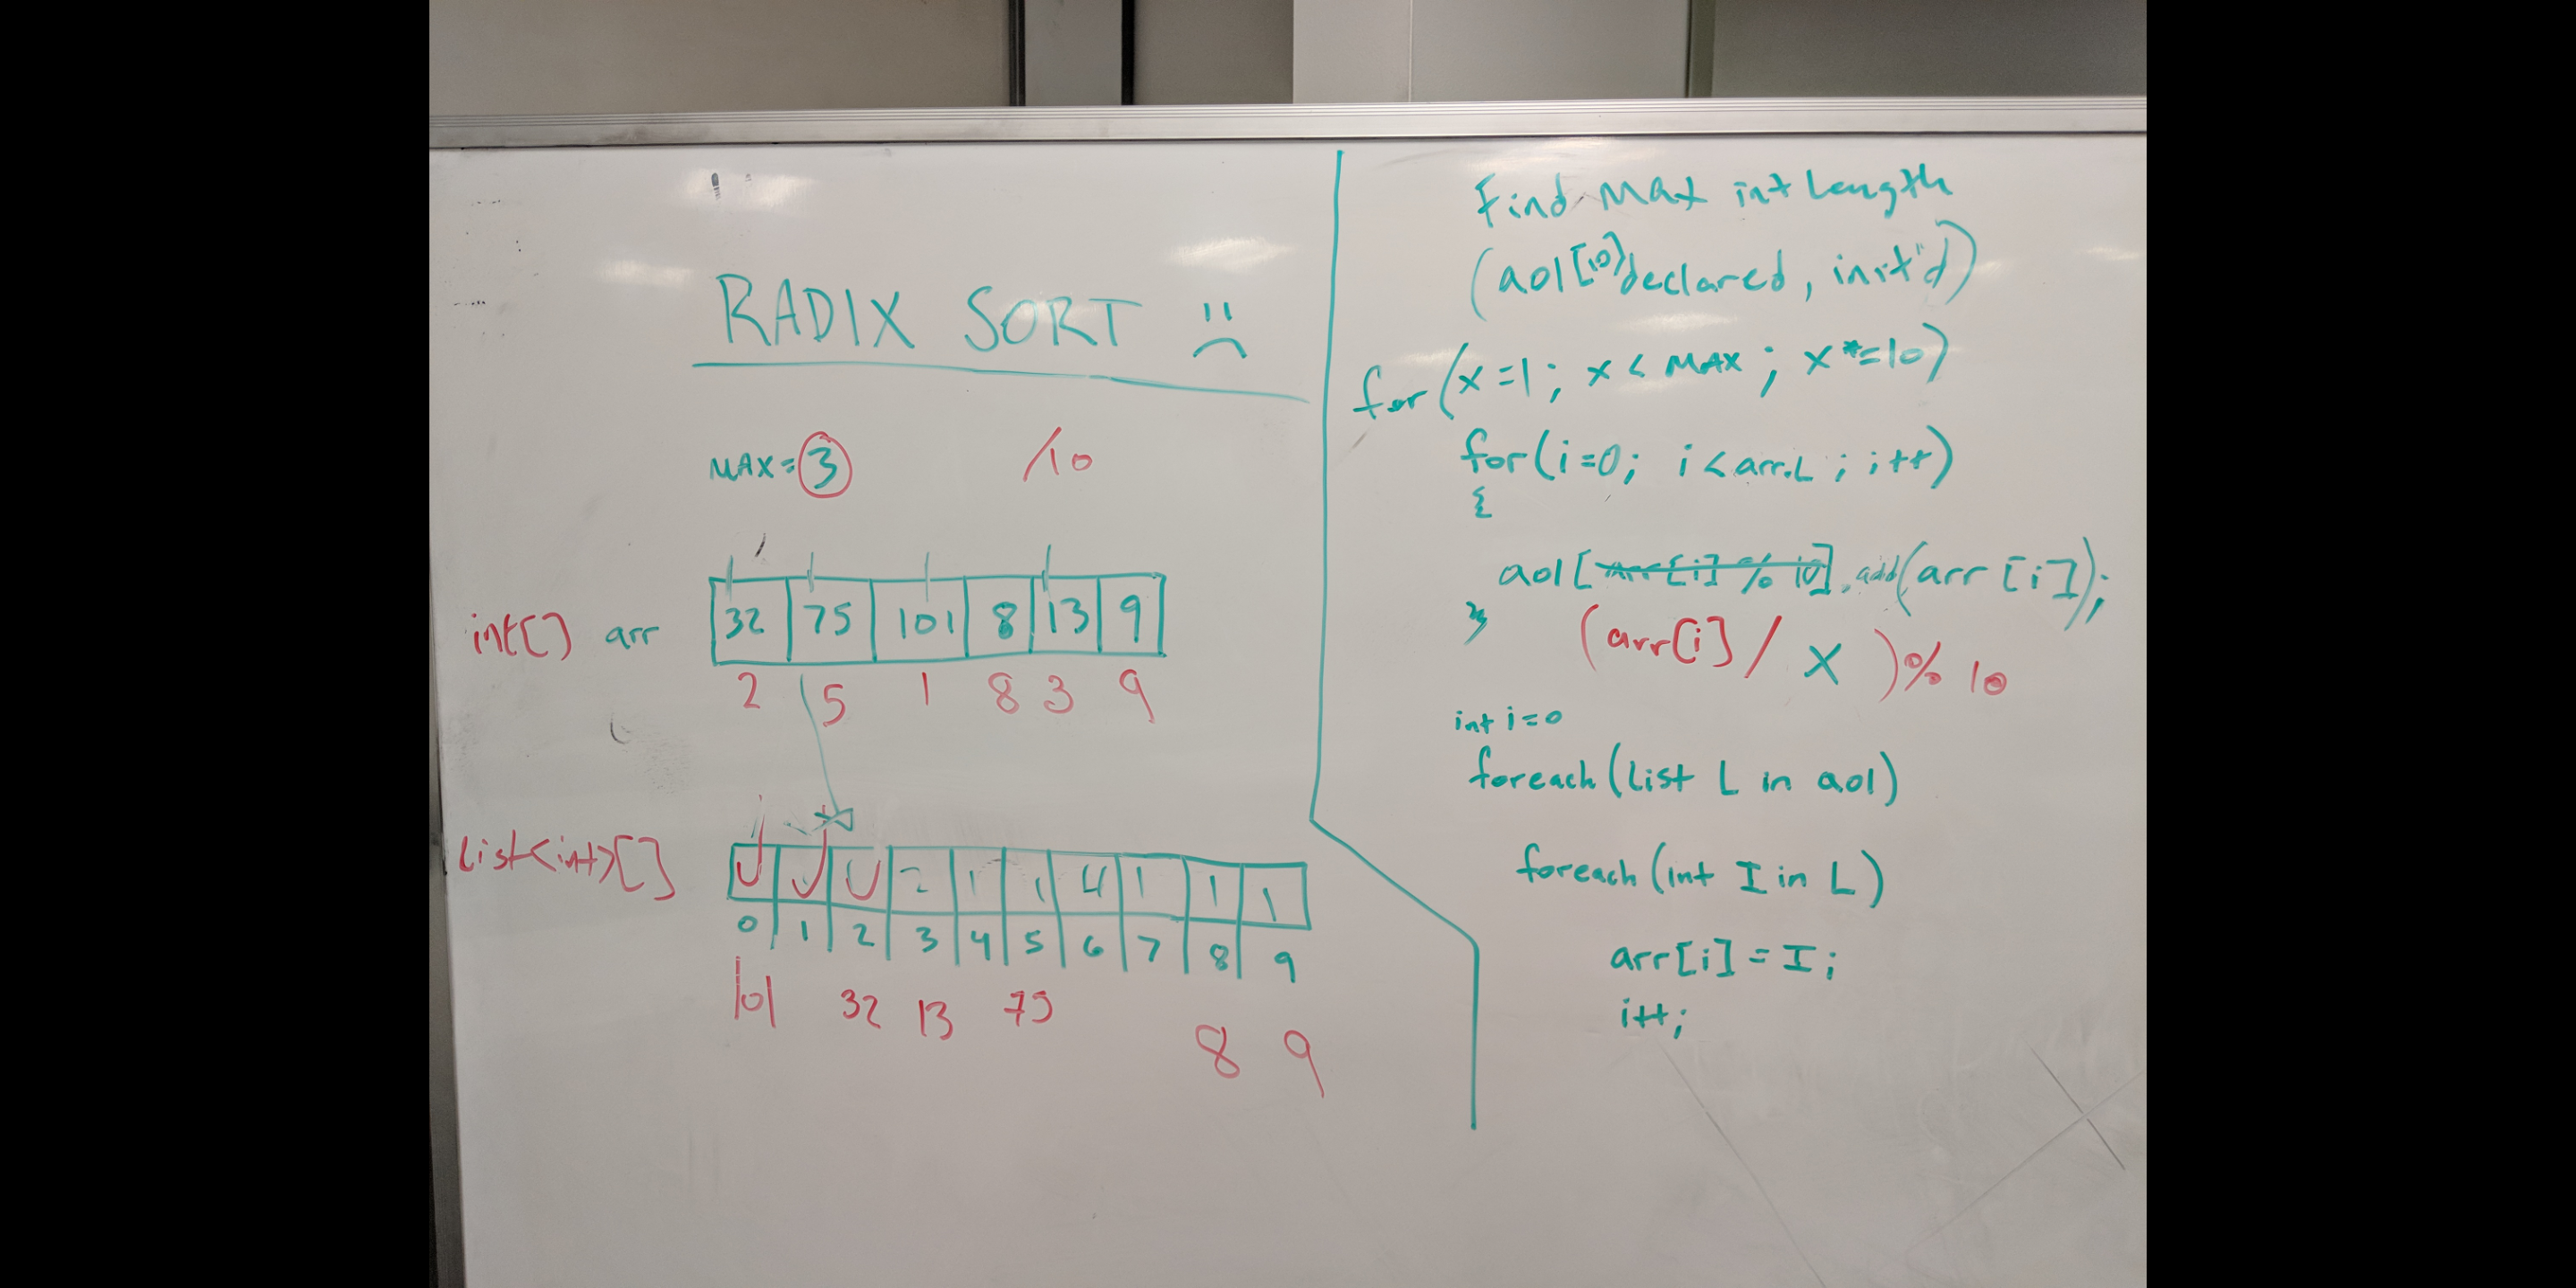 RADIX SORT
MAX=3 /10
int[] arr 32 75 101 8 13 9
2 5 1 8 3 9
List<int>[] 2 1 1 4 1 1 1
0 1 2 3 4 5 6 7 8 9
101 32 13 75
8 9
Find MAX int Length
(aol[10] declared, init'd)
for(x=1; x < MAX; x*=10)
for(i=0; i<arr.L; i++)
{
aol[arr[i] % 10].add(arr[i]);
} (arr[i] / X ) % 10
int i=0
foreach(List L in aol)
foreach(int I in L)
arr[i] = I;
i++;